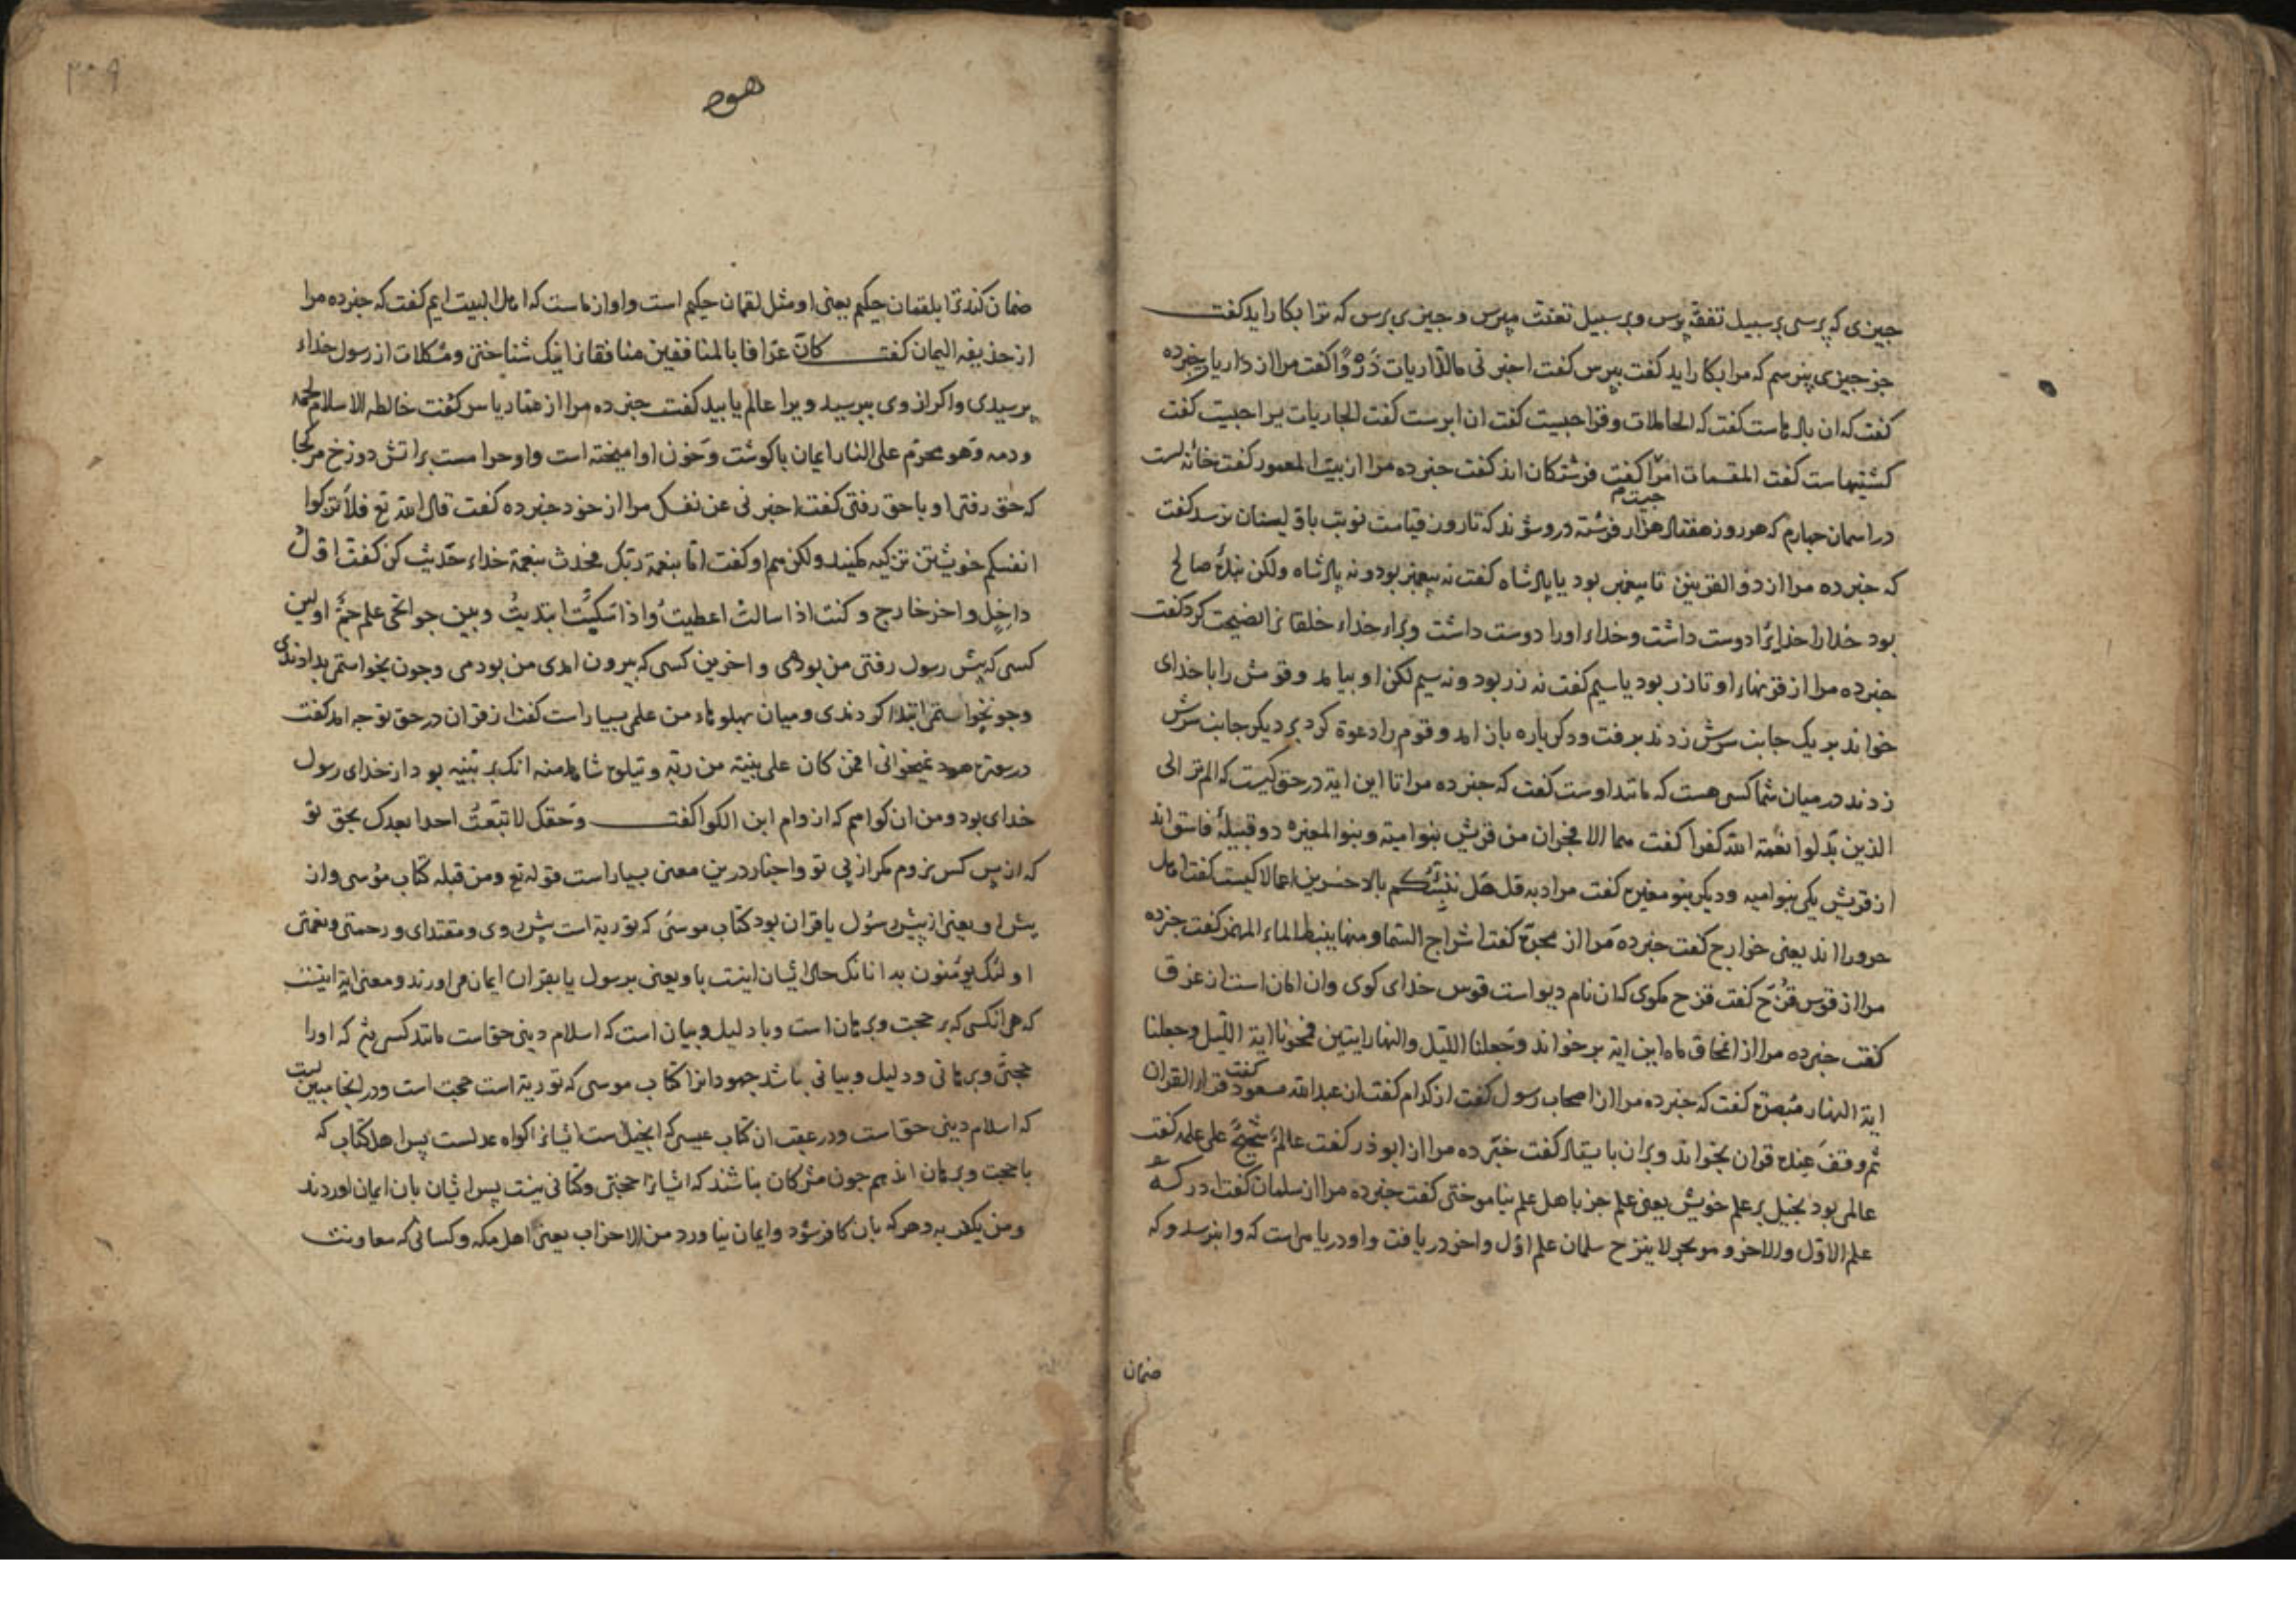 جیزی که پرسی بر سبیل تفقه پرس وبر سبیل تعنت مپرس و جیزی پرس که ترا بکار اید کفت
جز جیزی نپرسم که مرا بکار اید کفت بپرس کفت اخبرنی ما الذاریات ذروا کفت مرا از ذاریات خبر ده
کفت که ان بادهاست کفت که الحاملات وقرا جیست کفت ان ابرست کفت الجاریات یسرا جیست کفت
کشتیهاست کفت المقسمات امرا جیست کفت فرشتکان اند کفت خبر ده مرا از بیت المعمور کفت خانه است
در اسمان جهارم که هر روز هفتاد هزار فرشته درو شوند که تا روز قیامت نوبت با ولیشان نرسد کفت
که خبر ده مرا از ذو القرنین تا پیغمبر بود یا پادشاه کفت نه پیغمبر بود و نه پادشاه ولکن بندهٔ صالح
بود خدا را خدایرا دوست داشت وخداء اورا دوست داشت وبراء خداء خلقانرا نصیحت کرد کفت
خبر ده مرا از قرنهاء او تا زر بود یا سیم کفت نه زر بود و نه سیم لکن او بیامد وقومش را با خدای
خواند بر یک جانب سرش زدند برفت ودکر باره بازامد و قوم را دعوة کرد بر دیکر جانب سرش
زدند در میان شما کسی هست که مانند اوست کفت که خبر ده مرا تا این ایة در حق کیست که الم تر الی
الذین بدلوا نعمة الله کفرا کفت هما الافجران من قریش بنوامیة و بنوا المغیره دو قبیلهٔ فاسق اند
از قریش یکی بنوامیه ودیکر بنو مغیره کفت مراد به قل هل ننبئکم بالاخسرین اعمالا کیست کفت اهل
حرورا اند یعنی خوارج کفت خبر ده مرا از مجرة کفت اشراج السما ومنها ینبط الماء المنهمر کفت خبر ده
مرا از قوس قزح کفت قزح مکوی که ان نام دیو است قوس خدای کوی وان امان است از غرق
کفت خبر ده مرا از امحاق ماه این ایه بر خواند وجعلنا اللیل والنهار ایتین فمحونا ایة اللیل وجعلنا
ایة النهار مبصرة کفت که خبر ده مرا از اصحاب رسول کفت از کدام کفت از عبدالله مسعود کفت قرا القران
ثم وقف عنده قران بخواند وبران با یستاد کفت خبر ده مرا از ابوذر کفت عالم شحیح علی علمه کفت
عالمی بود بخیل بر علم خویش یعنی علم جز باهل علم نیاموختی کفت خبر ده مرا از سلمان کفت ادرک
علم الاول والاخر و هو بحر لا ینزح سلمان علم اول واخر دریافت واو دریایی است که وا نرسد وکه
ضمان
هود
ضمان کند ترا بلقمان حکیم یعنی او مثل لقمان حکیم است واو از ماست که اهل البیت ایم کفت که خبر ده مرا
از حذیفه الیمان کفت کان عرافا بالمنافقین منافقانرا نیک شناختی ومشکلات از رسول خداء
پرسیدی واکر از وی بپرسید ویرا عالم یابید کفت خبر ده مرا از عمار یاسر کفت خالطه الاسلام لحمه
ودمه وهو محرم علی النار ایمان با کوشت وخون او امیخته است واو حرامست بر اتش دوزخ هر کجا
که حق رفتی او با حق رفتی کفت اخبرنی عن نفسک مرا از خود خبر ده کفت قال الله تع فلا تزکوا
انفسکم خویشتن تزکیه مکنید ولکن هم او کفت اما بنعمة ربک فحدث بنعمة خداء حدیث کن کفت اول
داخل واخر خارج و کنت اذا سالت اعطیت واذا سکت ابتدیت وبین جوانحی علم جم اولین
کسی که پیش رسول رفتی من بودمی و اخرین کسی که بیرون امدی من بودمی وجون بخواستمی بدادندی
وجو نخواستمی ابتدا کردندی ومیان پهلوهاء من علمی بسیار است کفت از قران در حق تو جه امد کفت
در سورة هود نمیخوانی افمن کان علی بینة من ربه ویتلوه شاهد منه انک بر بینه بود از خدای رسول
خدای بود ومن ان کواهم که ازوام ابن الکوا کفت وحقک لا تبعت احدا بعدک بحق تو
که از پس کس نروم مکر از پی تو واخبار درین معنی بسیار است قوله تع ومن قبله کتاب موسی واز
پیش او یعنی از پیش رسول یا قران بود کتاب موسی که توریة است پیش روی و مقتدای ورحمتی ونعمتی
اولئک یؤمنون به انانک حال ایشان اینست باو یعنی برسول یا بقران ایمان می اورند ومعنی ایة اینست
که هر انکسی که بر حجت وبرهان است وبا دلیل وبیان است که اسلام دینی حق است مانند کسی بود که اورا
حجتی وبرهانی ودلیل وبیانی باشد جهودانرا کتاب موسی که توریة است حجت است ودر انجا مبین است
که اسلام دینی حق است ودر عقب ان کتاب عیسی که انجیل است ایشانرا کواه عدلست پس اهل کتاب که
با حجت وبرهان اند هم جون مشرکان نباشند که ایشانرا حجتی وکتابی نیست پس ایشان بان ایمان اوردند
ومن یکفر به وهرکه بان کافر شود وایمان نیاورد من الاحزاب یعنی اهل مکه وکسانی که معاونت